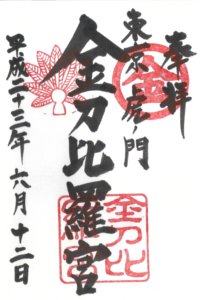 奉拝
東京虎ノ門
金刀比羅宮
平成二十三年六月十二日
金
金刀比
羅宮